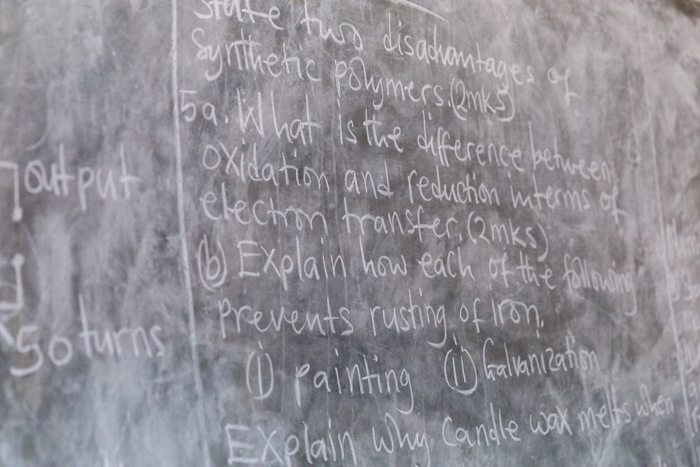 output
50 turns
State two disadvantages of
Synthetic polymers.(2mks)
5a. What is the difference between
oxidation and reduction interms of
electron transfer.(2mks)
(b) Explain how each of the following
prevents rusting of iron.
(i) painting (ii) Galvanization
Explain why Candle wax melts when